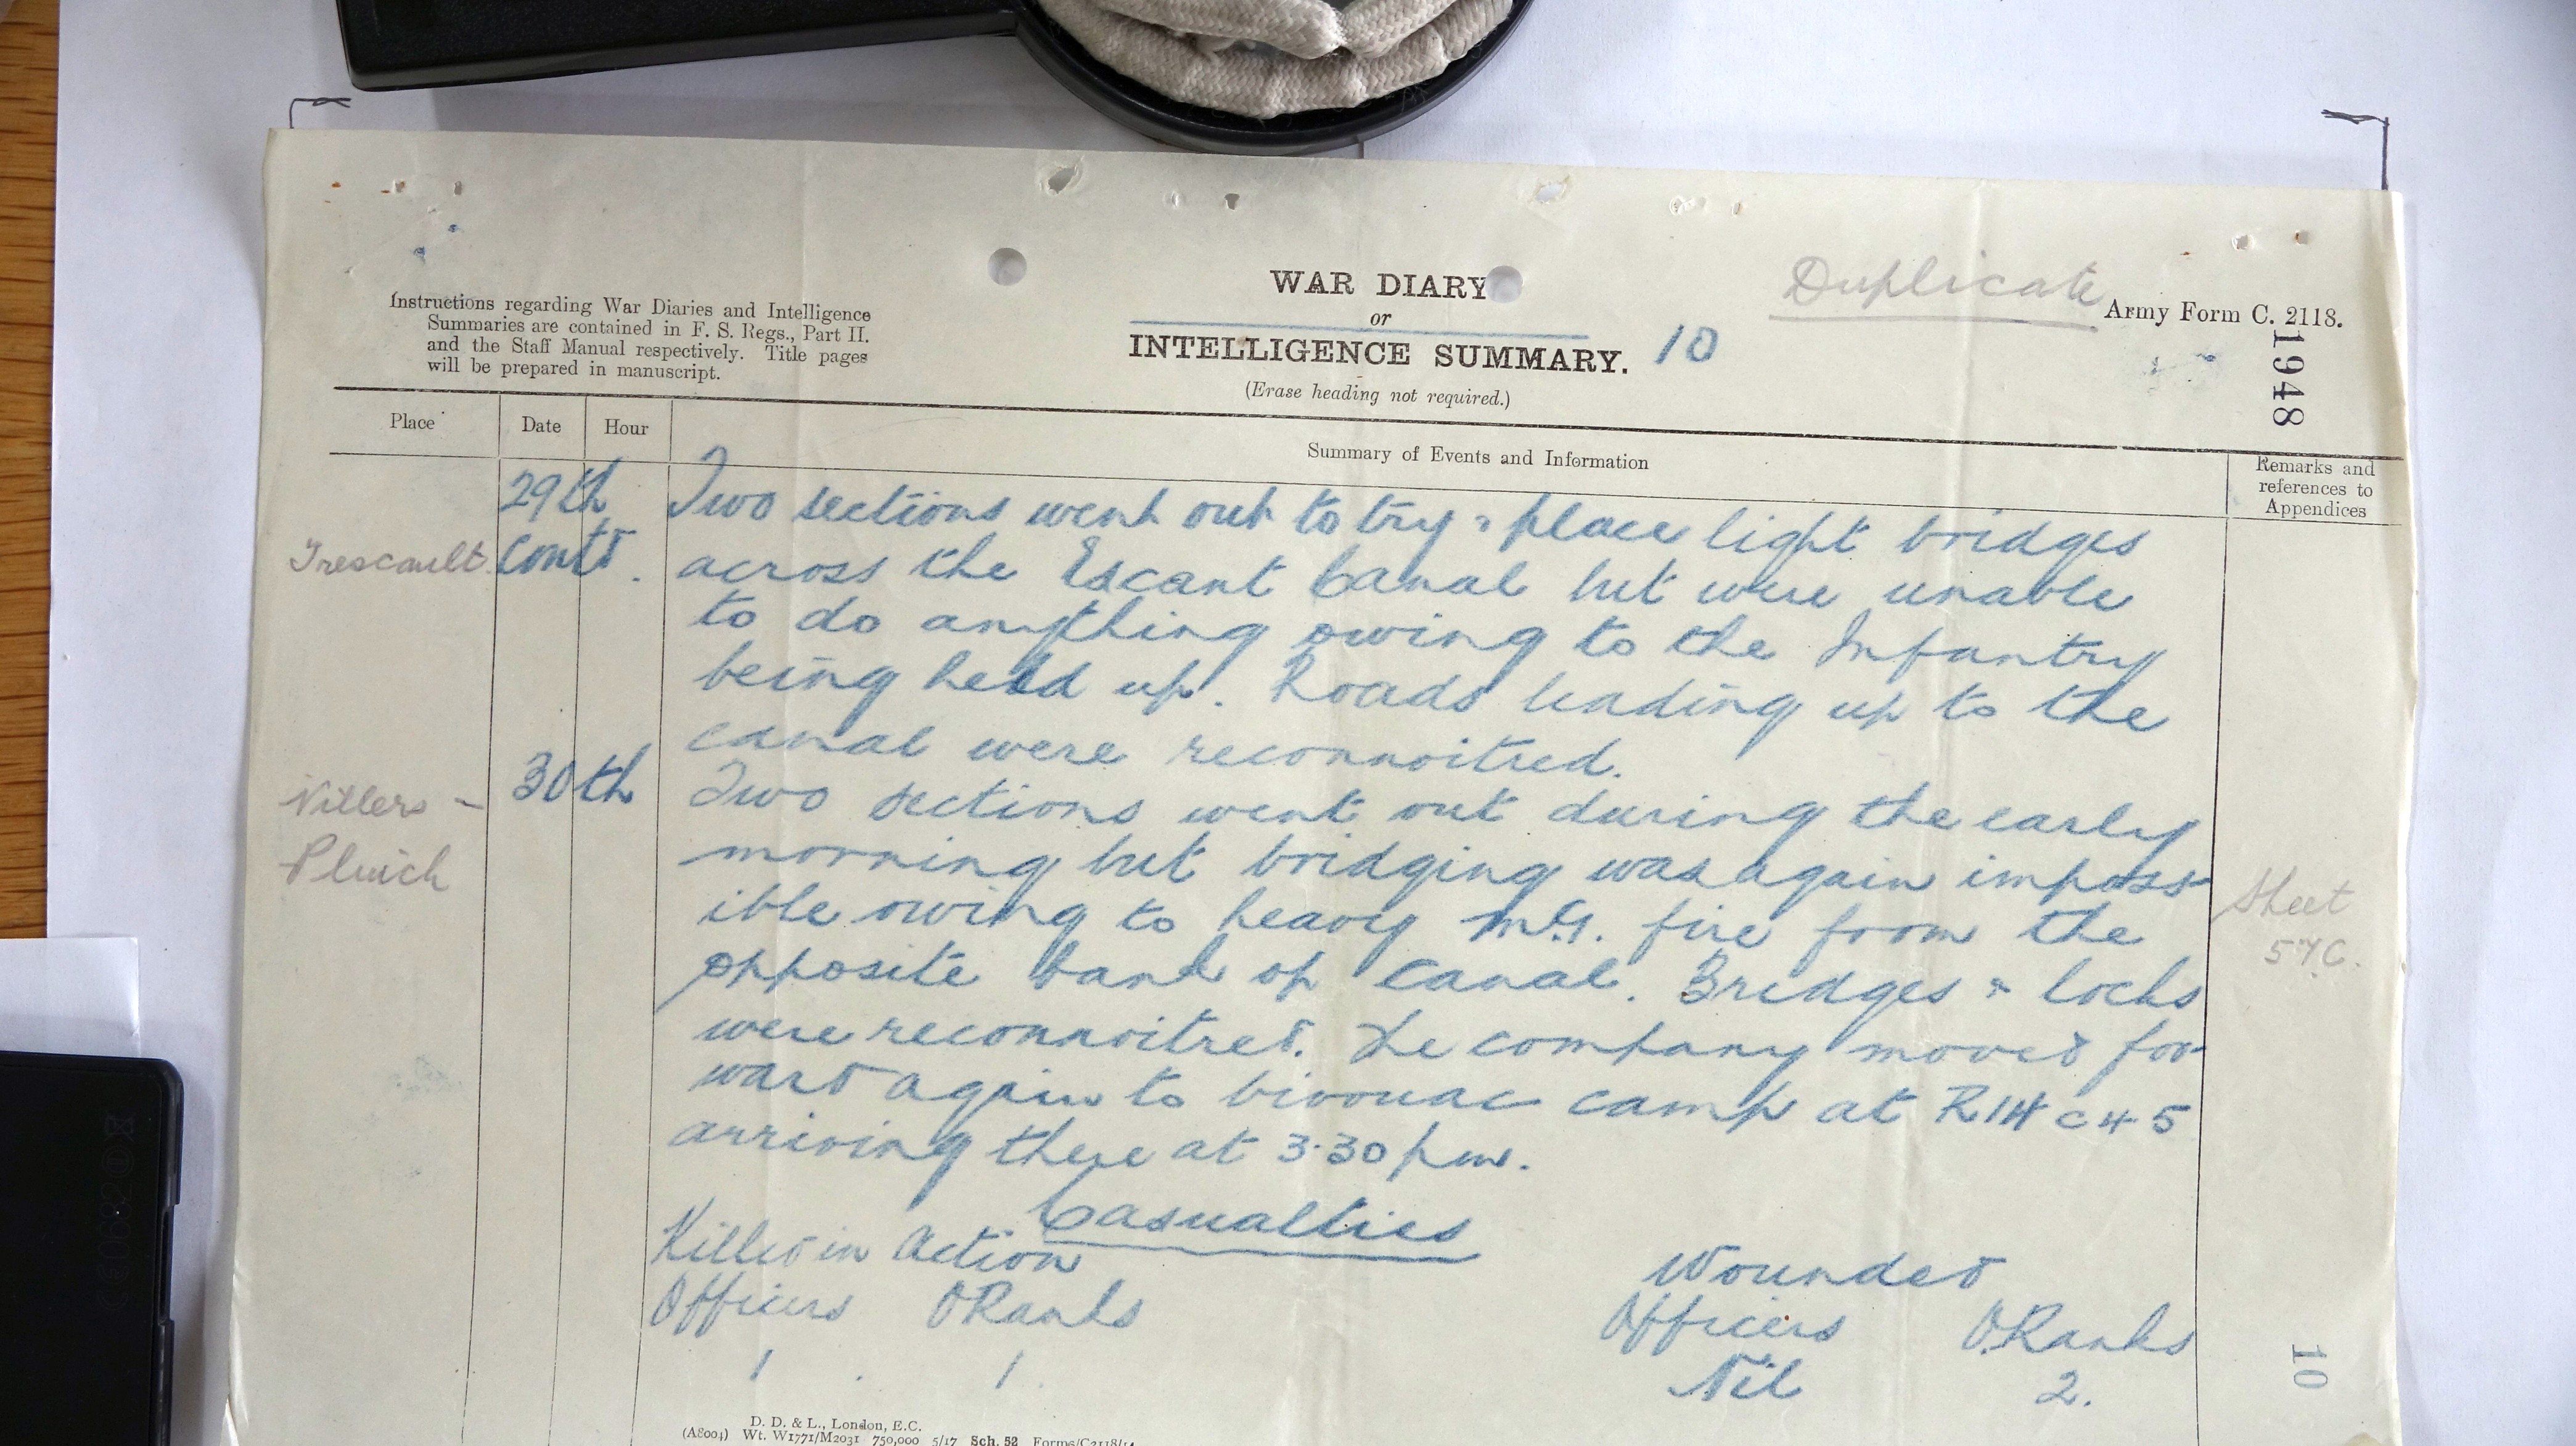 Duplicate
WAR DIARY
or
INTELLIGENCE SUMMARY.
10
(Erase heading not required.)
Army Form C. 2118.
1948
Instructions regarding War Diaries and Intelligence
Summaries are contained in F. S. Regs., Part II.
and the Staff Manual respectively. Title pages
will be prepared in manuscript.
Place Date Hour Summary of Events and Information Remarks and
references to
Appendices
Trescault 29th Contd. Two sections went out to try & place light bridges
across the Escant Canal but were unable
to do anything owing to the Infantry
being held up. Roads leading up to the
canal were reconnoitred.
Villers - 30th Two sections went out during the early
Pluich morning but bridging was again imposs
ible owing to heavy M.G. fire from the Sheet
opposite bank of canal. Bridges & locks 57C.
were reconnoitred. The company moved for
ward again to bivouac camp at R14 c 4 5
arriving there at 3.30 pm.
Casualties
Killed in Action Wounded
Officers ORanks Officers O.Ranks
1 . 1 Nil 2.
10
D. D. & L., London, E.C.
(A8004) Wt. W1771/M2031 750,000 5/17 Sch. 52 Forms/C2118/14